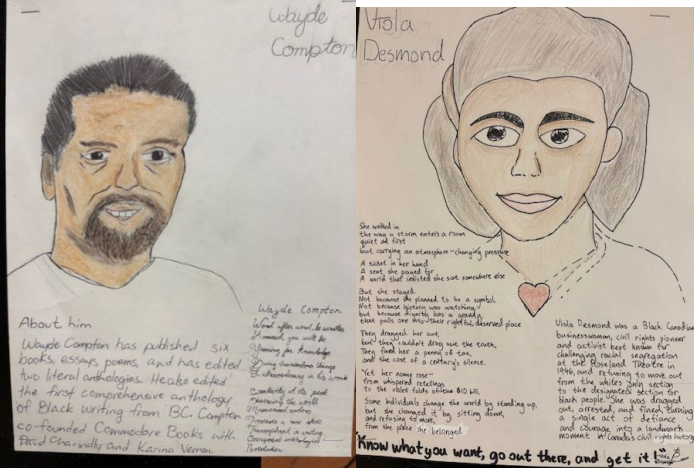 Wayde
Compton
About him
Wayde Compton has published six
books, essays, poems, and has edited
two literal anthologies. He also edited
the first comprehensive anthology
of Black writing from B.C. Compton
co-founded Commodore Books with
David Chariandy and Karina Vernon.
Wayde Compton
Word after word, he
you will be
Yearning for Knowledge
things
Extraordinary in his work
Creativity at its peak
the world
Memorized
in writing
anthologies
Viola
Desmond
She walked in
the way a storm enters a room
quiet at first
but carrying an atmosphere-changing pressure
A ticket in her hand
A seat she paid for
A world that insisted she sat somewhere else
But she stayed.
Not because she planned to be a symbol
Not because history was watching
but because dignity has a gravity
that pulls one into their rightful, deserved place
They dragged her out,
but they couldn't drag out the truth.
They fined her a penny of tax,
and the cost of a century's silence.
Yet her name rose
from whispered retellings
to the violet folds of the $10 bill.
Some individuals change the world by standing up,
but she changed it by sitting down,
and refusing to move,
from the place she belonged
Viola Desmond was a Black Canadian
businesswoman, civil rights pioneer
and activist best known for
challenging racial segregation
at the Roseland Theatre in
1946, and refusing to move out
from the whites only section
to the designated section for
black people. She was dragged
out, arrested, and fined, turning
a single act of defiance
and courage into a landmark
moment in Canada's civil rights history
"Know what you want, go out there, and get it!"